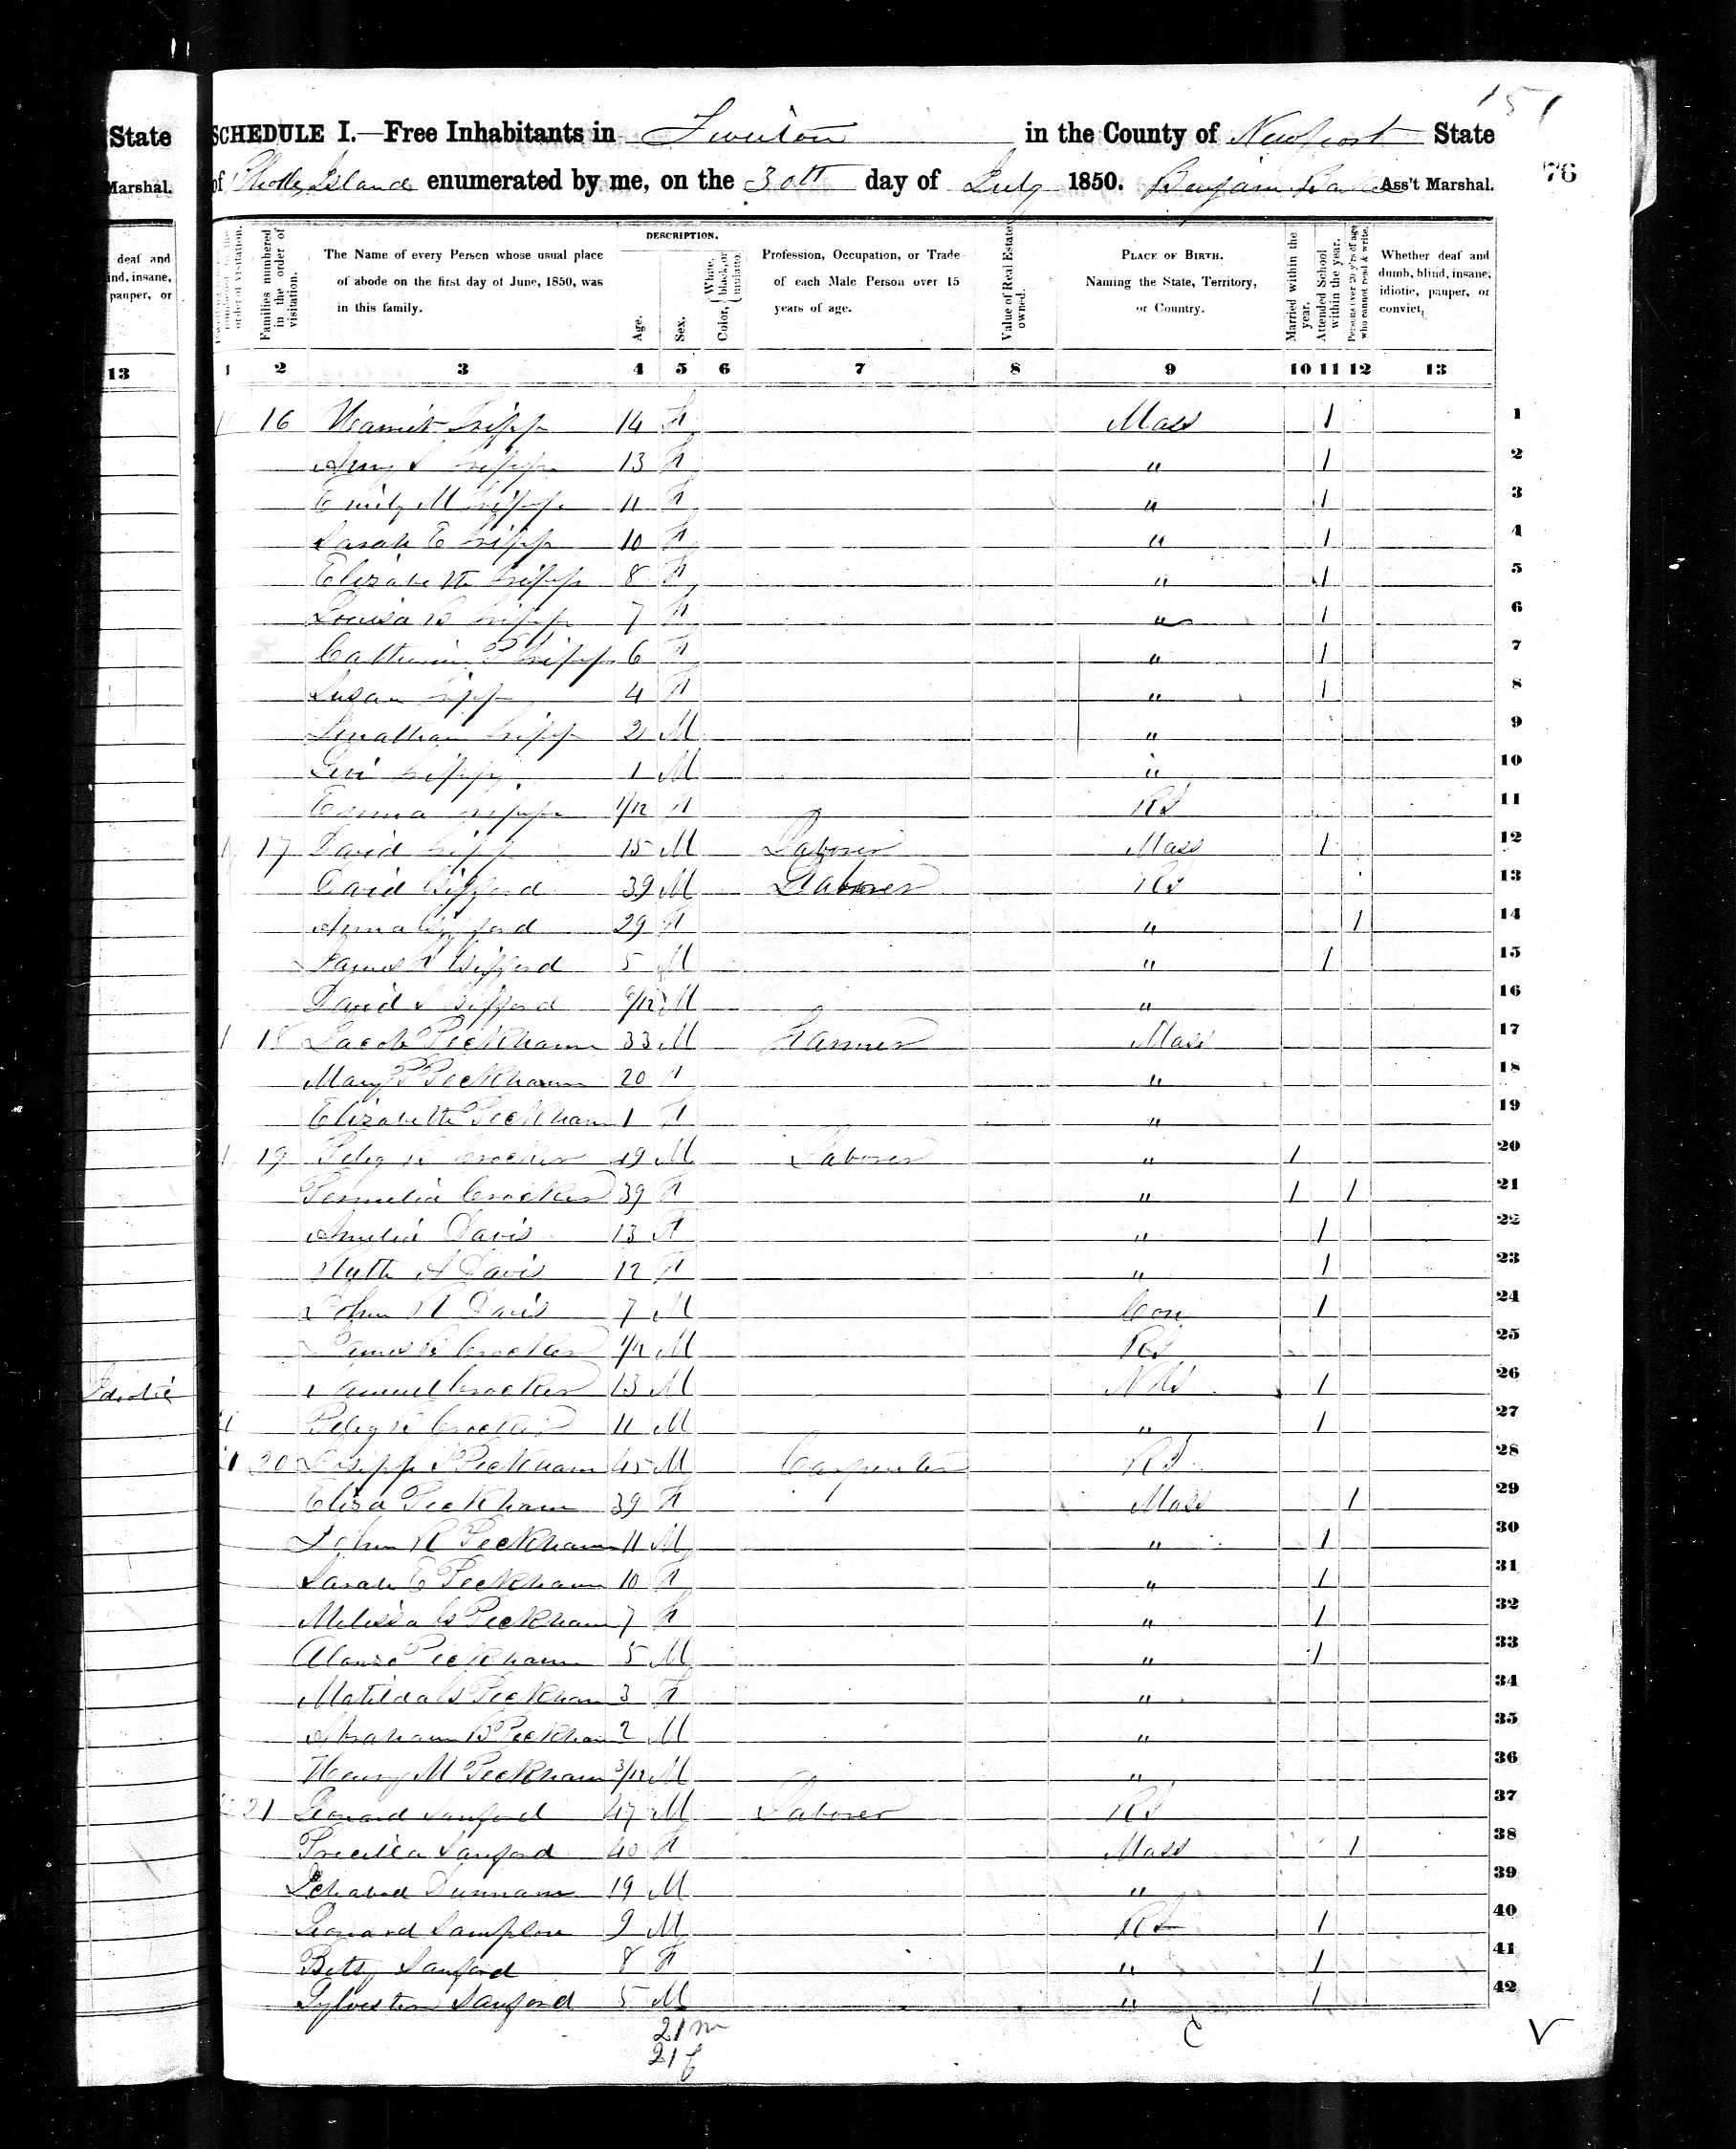 151
State
Marshal.
deaf and
ind, insane,
pauper, or
13
Idiotic
SCHEDULE I.—Free Inhabitants in Tiverton in the County of Newport State
of Rhode Island enumerated by me, on the 30th day of July 1850. Benjamin Ass't Marshal.
76
Families numbered in the order of visitation.
The Name of every Person whose usual place of abode on the first day of June, 1850, was in this family.
DESCRIPTION.
Age.
Sex.
Color, White, black, or mulatto.
Profession, Occupation, or Trade of each Male Person over 15 years of age.
Value of Real Estate owned.
PLACE OF BIRTH. Naming the State, Territory, or Country.
Married within the year.
Attended School within the year.
Persons over 20 y'rs of age who cannot read & write.
Whether deaf and dumb, blind, insane, idiotic, pauper, or convict.
1 2 3 4 5 6 7 8 9 10 11 12 13
16 Tripp 14 F Mass 1 1
Amy S Tripp 13 F " 1 2
Emily M Tripp 11 F " 1 3
Sarah E Tripp 10 F " 1 4
Elizabeth Tripp 8 F " 1 5
Louisa B Tripp 7 F " 1 6
Catherine P Tripp 6 F " 1 7
Susan Tripp 4 F " 1 8
Jonathan Tripp 2 M " 9
Levi Tripp 1 M " 10
Emma Tripp 1/12 F RI 11
17 David Tripp 15 M Laborer Mass 1 12
David Gifford 39 M Laborer RI 13
Anna Gifford 29 F " 1 14
James Gifford 5 M " 1 15
David S Gifford /12 M " 16
18 Jacob Peckham 33 M Farmer Mass 17
Mary P Peckham 20 F " 18
Elizabeth Peckham 1 F " 19
19 Peleg Crocker 49 M Laborer " 1 20
Crocker 39 F " 1 1 21
Amelia Davis 13 F " 1 22
A Davis 12 F " 1 23
John Davis 7 M Con 1 24
James Crocker M RI 25
Samuel Crocker 13 M 1 26
Peleg Crocker 11 M " 1 27
20 Peckham 45 M Carpenter RI 28
Eliza Peckham 39 F Mass 1 29
John R Peckham 11 M " 1 30
Sarah E Peckham 10 F " 1 31
Melissa Peckham 7 F " 1 32
Alonzo Peckham 5 M " 1 33
Matilda Peckham 3 F " 34
Abraham B Peckham 2 M " 35
Henry M Peckham 3/12 M " 36
21 Leonard Sanford 47 M Laborer RI 37
Precilla Sanford 40 F Mass 1 38
Ichabod Dunham 19 M " 39
Leonard 9 M RI 1 40
Betty Sanford 8 F " 1 41
Sylvester Sanford 5 M " 1 42
21 m
21 f